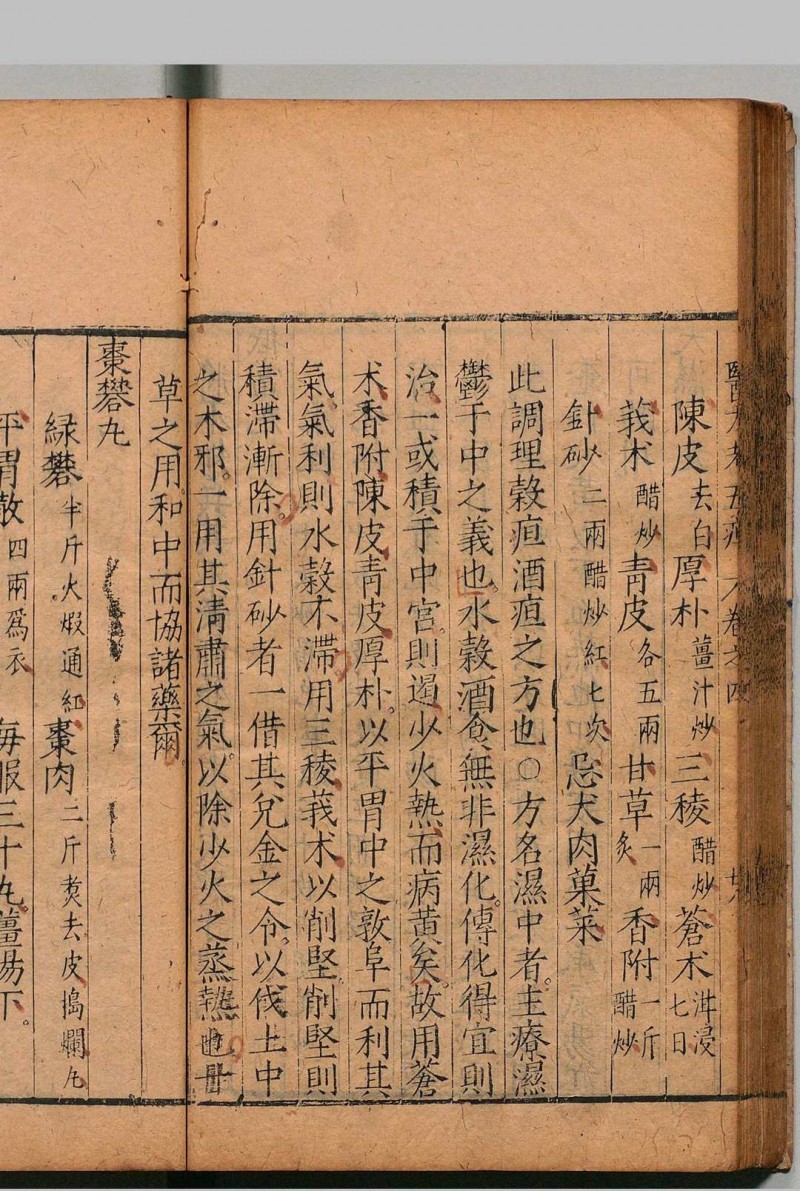 陳皮去白厚朴薑汁炒三稜醋炒蒼朮泔浸七日
莪朮醋炒青皮各五兩甘草一兩炙香附一斤醋炒
針砂二兩醋炒紅七次忌犬肉菓菜
此調理穀疸酒疸之方也○方名濕中者主療濕
鬱于中之義也水穀酒食無非濕化傳化得宜則
治一或積于中宮則遏少火熱而病黃矣故用蒼
朮香附陳皮青皮厚朴以平胃中之敦阜而利其
氣氣利則水穀不滯用三稜莪朮以削堅削堅則
積滯漸除用針砂者一借其兌金之令以伐土中
之木邪一用其清肅之氣以除少火之蒸熱也甘
草之用和中而協諸藥爾
棗礬丸
綠礬半斤火煆通紅棗肉二斤煑去皮搗爛丸
平胃散四兩爲衣 每服三十丸薑湯下